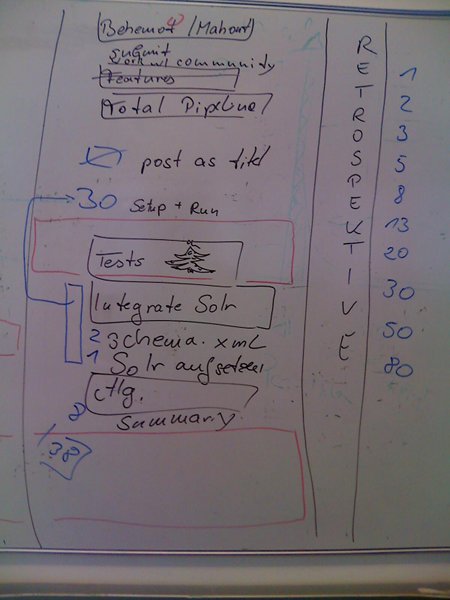 Behemot /Mahout
submit
work w/ community
Features
Total Pipeline
post as
30 Setup + Run
Tests
Integrate Solr
2 schema.xml
1 Solr aufsetzen
Alg.
8 Summary
38
RETROSPEKTIVE
1
2
3
5
8
13
20
30
50
80